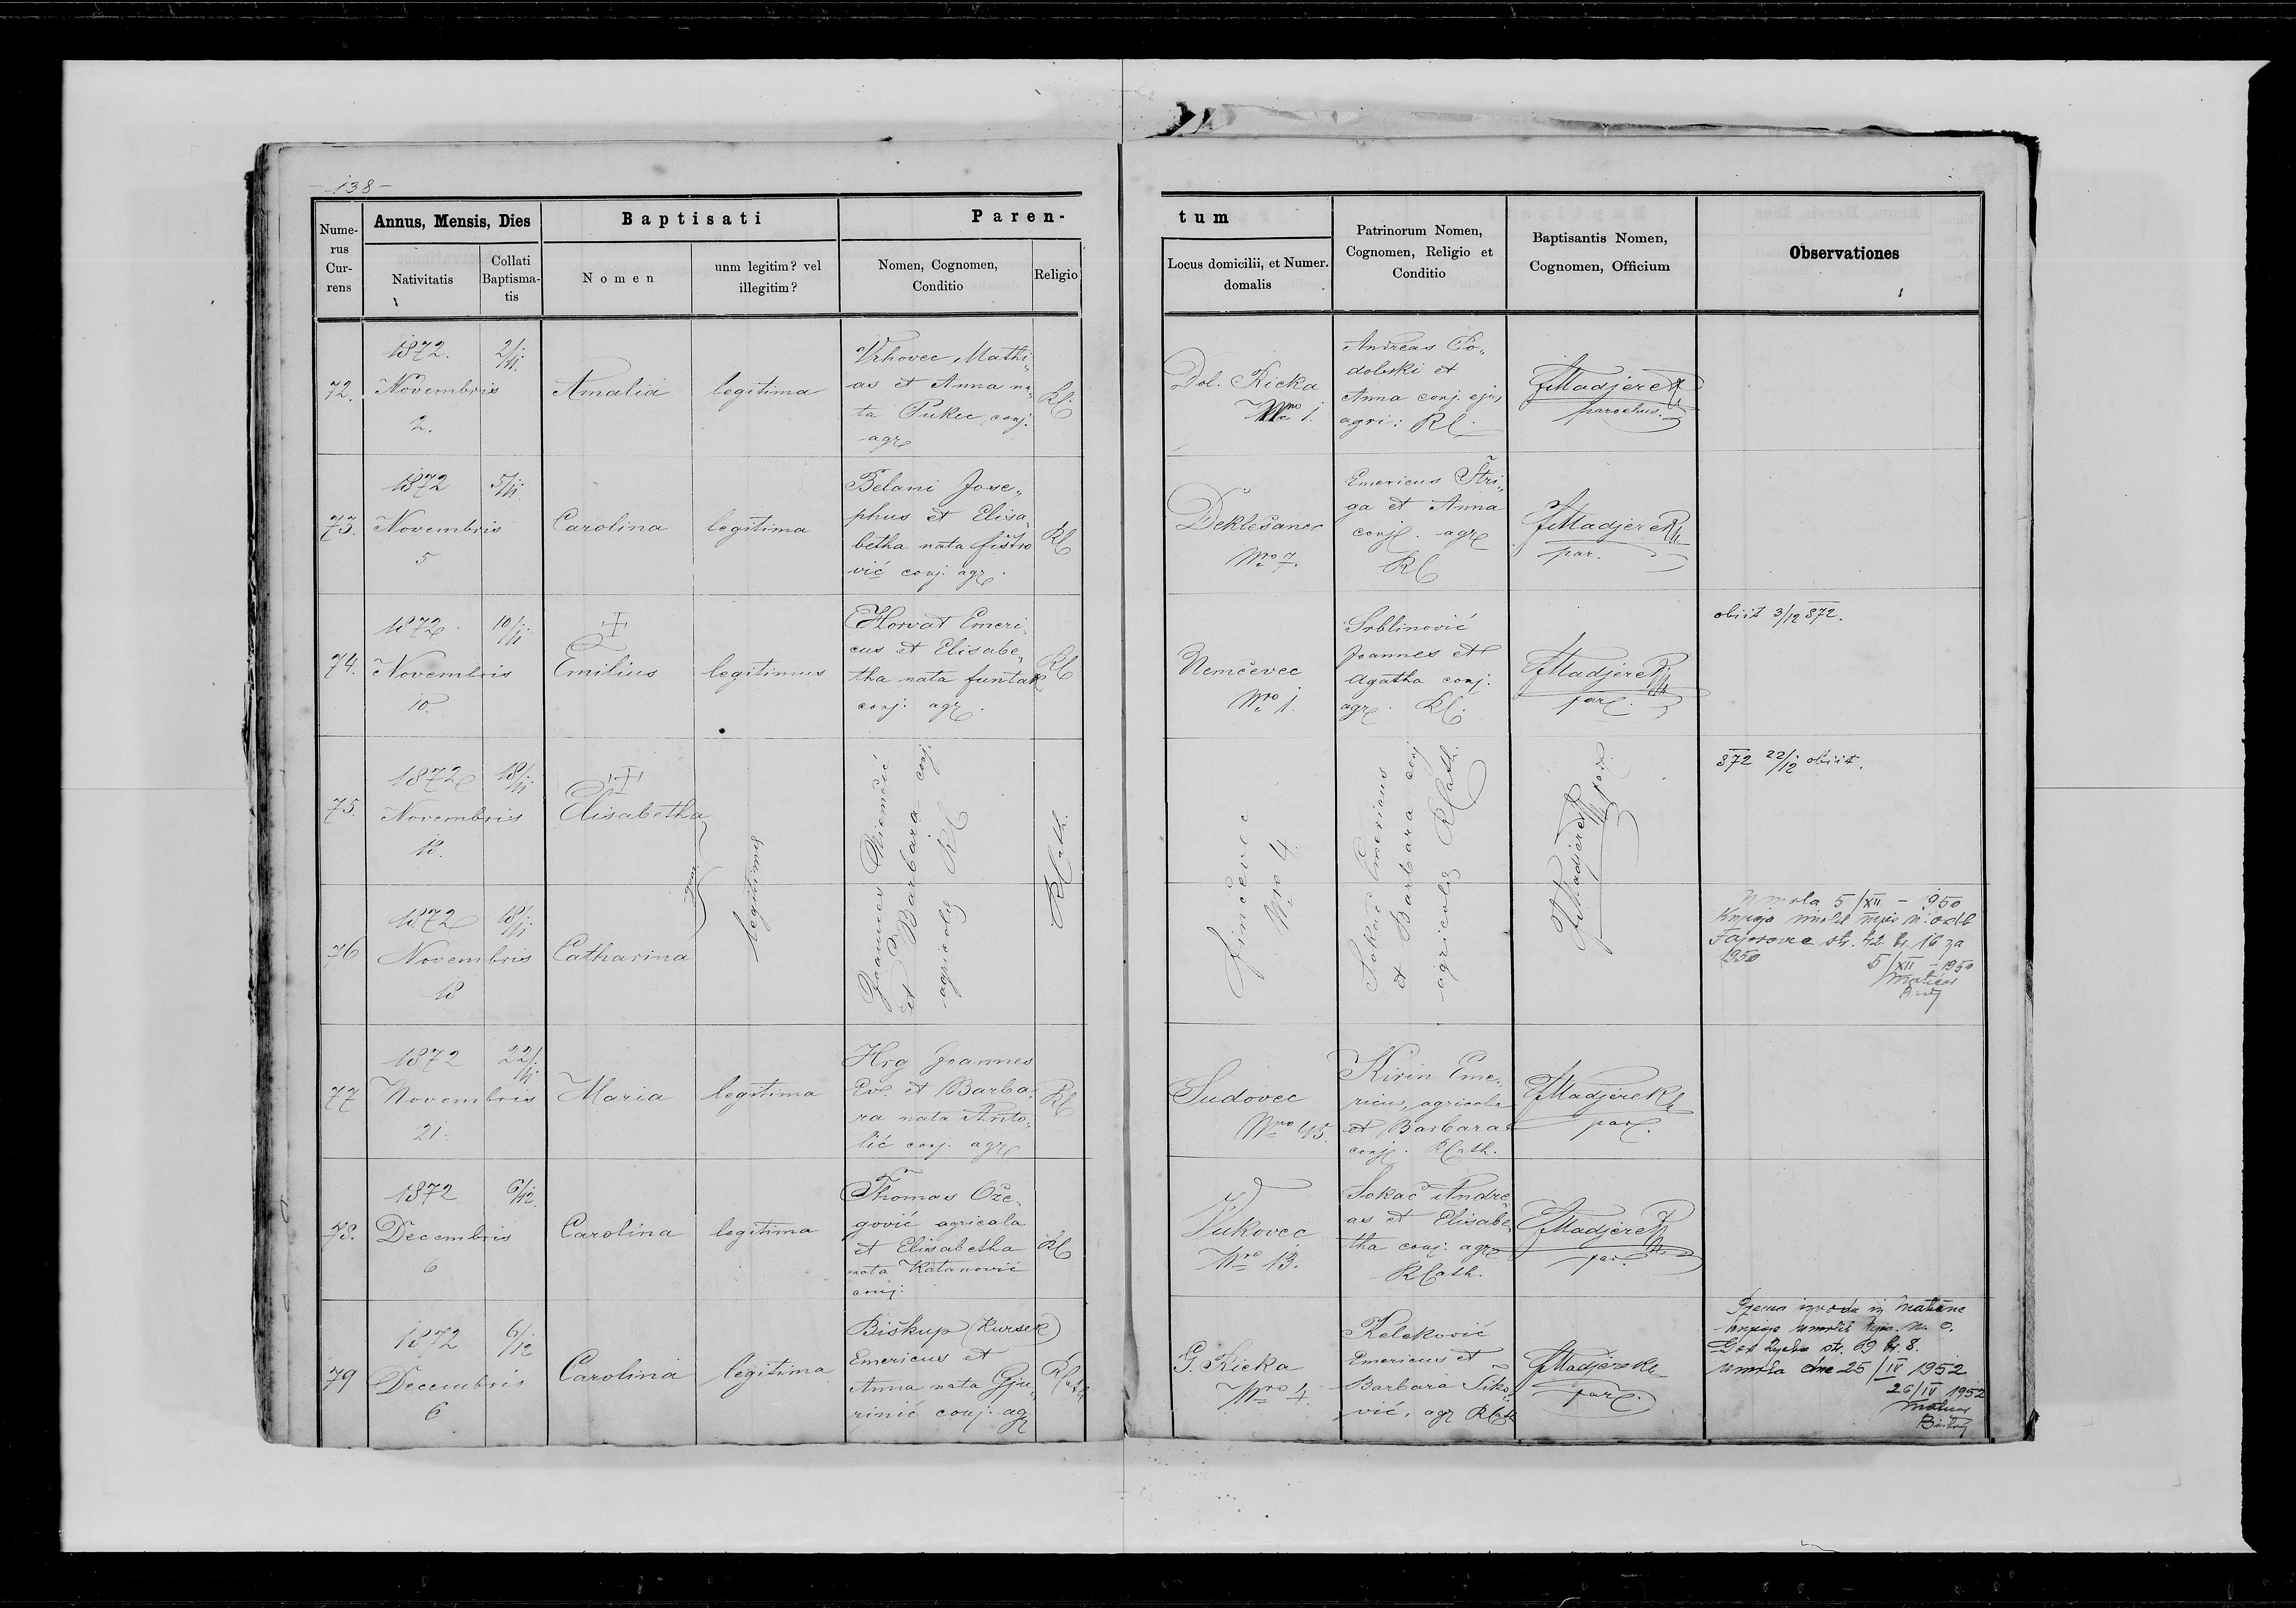 - 138 -
Nume-
rus
Cur-
rens
Annus, Mensis, Dies
Nativitatis
Collati
Baptisma-
tis
Baptisati
Nomen
unm legitim? vel
illegitim?
Paren-
Nomen, Cognomen,
Conditio
Religio
tum
Locus domicilii, et Numer.
domalis
Patrinorum Nomen,
Cognomen, Religio et
Conditio
Baptisantis Nomen,
Cognomen, Officium
Observationes
72.
1872.
Novembris
2.
2/11.
Amalia
legitima
Vrhovec Mathi„
as et Anna na„
ta Pukec conj.
agr
RC
Dol. Kicka
Nro 1.
Andreas Po„
dolski et
Anna conj. ejus
agri: RC.
Madjerek
parochus.
73.
1872
Novembris
5
5/11.
Carolina
legitima
Belani Jose„
phus et Elisa„
betha nata fištro
vić conj. agr.
RC
Deklešanec
Nro 7.
Emericus Štri„
ga et Anna
conj. agr
RC
Madjerek
par.
74.
1872
Novembris
10.
10/11
Emilius
legitimus
Horvat Emeri„
cus et Elisabe„
tha nata funtak
conj. agr.
RC
Nemčevec
Nro 1.
Srblinović
Joannes et
Agatha conj.
agr. RC.
Madjerek
par.
obiit 3/12 872.
75.
1872
Novembris
18.
18/11
Elisabetha
76
1872
Novembris
18
18/11
Catharina
gem.
legitimes
Joannes
et Barbara conj.
agricolæ RC
RCath.
Finčevec
Nro 4.
Sokač Emericus
et Barbara conj
agricolæ RCath.
Madjerek
par.
872 22/12 obiit.
Umrla 5/XII - 1950
Knjiga umrlih
str. 42 br. 16 za
1950
5/XII - 1950
Matičar
77
1872
Novembris
21.
22/11
Maria
legitima
Hrg Joannes
Ev. et Barba„
ra nata Anto„
lić conj. agr
RC
Sudovec
Nro 45.
Kirin Eme„
ricus, agricola
et Barbara
conj. RCath.
Madjerek
par.
78.
1872
Decembris
6
6/12.
Carolina
legitima
Thomas Ože„
gović agricola
et Elisabetha
nata Katanović
conj.
RC
Vukovec
Nro 13.
Sokač Andre„
as et Elisabe„
tha conj. agr
RCath.
Madjerek
par.
79
1872
Decembris
6
6/12
Carolina
legitima
Biškup (Kursek)
Emericus et
Anna nata Gju„
rinić conj. agr
RCath
G. Kicka
Nro 4.
Keleković
Emericus et
Barbara Siko„
vić, agr RCath
Madjerek
par.
Prema izvodu iz matične
knjige umrlih
str. 69 br. 8.
umrla dne 25/IV 1952
26/IV 1952
Matičar